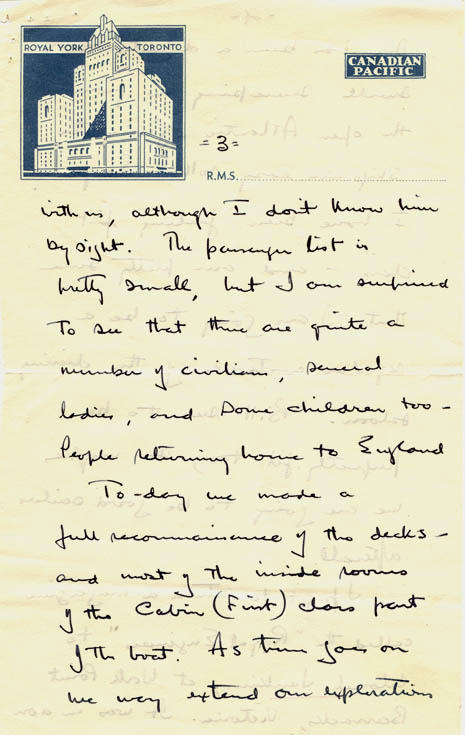 ROYAL YORK TORONTO
CANADIAN PACIFIC
= 3 =
R.M.S.
with us, although I don't know him
by sight. The passenger list is
pretty small, but I am surprised
to see that there are quite a
number of civilians, several
ladies, and some children too -
People returning home to England
To-day we made a
full reconnaissance of the decks -
and most of the inside rooms
of the Cabin (First) class part
of the boat. As time goes on
we may extend our explorations